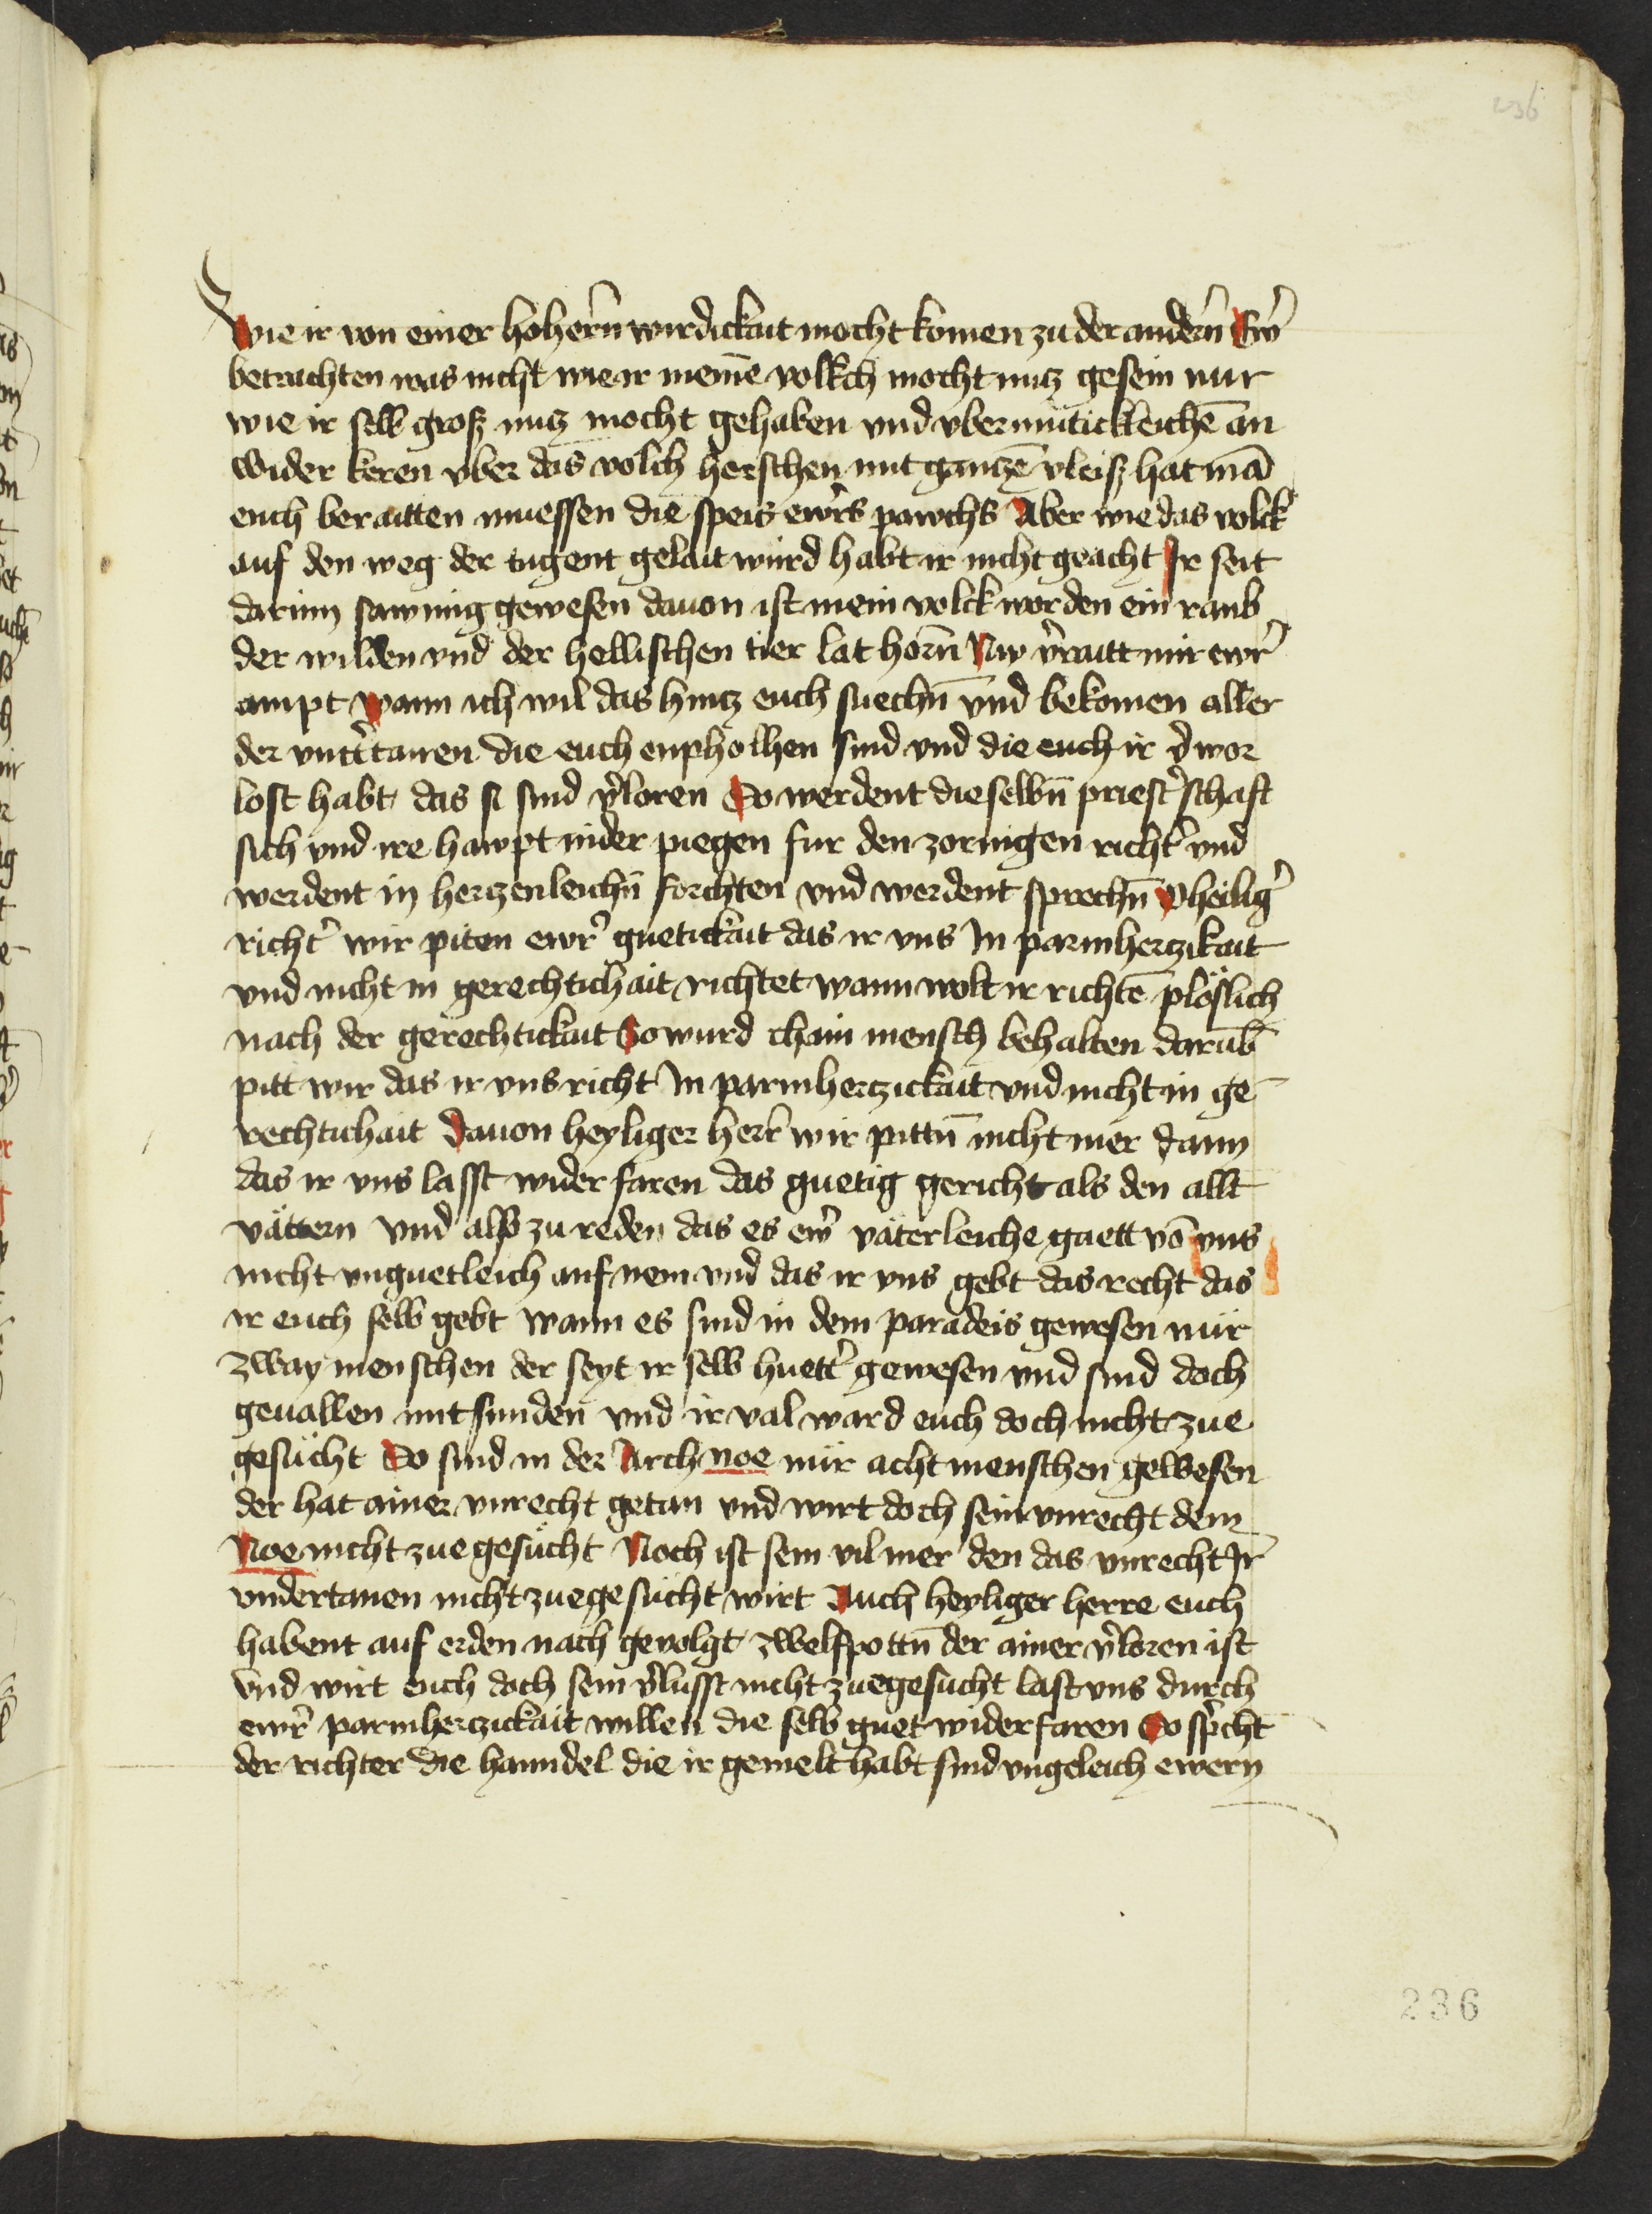 236
Wie ir von einer hohern̄ wirdickait mocht komen zu der andern̄ Ew̄r
betrachten was nicht wie ir meinē volkch mocht nutz gesein nur
wie ir selb grosz nutz mocht gehaben vnd vbermütickleichē an
wider keren vber das volch herschen mit gantzē vleisz hat mā
euch beraitten muessen die speis ewrs pawchs Aber wie das volck
auf den weg der tugent gelait würd habt ir nicht geacht Ir seit
darinn sawmig gewesen dauon ist mein volck worden ein raub
der wilden vnd der hellischen tier lat horn̄ Nw v̄raitt mir ewr̄
ampt wann ich wil das hintz euch suechn̄ vnd bekomen aller
der vntt̄tanen die euch enpholhen sind vnd die euch ir v̄wor
lost habt das si sind v̄loren So werdent dieselbn̄ priest̄schaft
sich vnd ire hawpt nider piegen fur den zornigen richt̄ vnd
werdent in hertzenleichn̄ forchten vnd werdent sprechn̄ O heiliḡ
richt̄ wir piten ewr̄ guetickait das ir vns In parmhertzikait
vnd nicht in gerechtichait richtet wann wolt ir richtē plöslich
nach der gerechtickait So wurd chain mensch behalten darūb
pitt wir das ir vns richt In parmhertzickait vnd nicht in ge-
rechtichait Dauon heyliger herr̄ wir pittn̄ nicht mer dann
das ir vns lasst wider faren das guetig gericht als den allt
vättern vnd also zu reden das es ew̄r väterleiche guett vō vns
nicht vnguetleich auf nem vnd das ir vns gebt das recht das
ir euch selb gebt wann es sind in dem paradeis gewesen nür
zway menschen der seyt ir selb huett̄ gewesen vnd sind doch
geuallen mit sunden vnd ir val ward euch doch nicht zue
gesücht So sind in der Arch noe nür acht menschen gewesen
der hat ainer vnrecht getan vnd wirt doch sein vnrecht dem
Noe nicht zue gesücht Noch ist sein vil mer den das vnrecht Ir̄
vndertanen nicht zuegesücht wirt Auch heyliger herre euch
habent auf erden nach geuolgt zwelfpottn̄ der ainer v̄loren ist
vnd wirt euch doch sein v̄lusst nicht zuegesucht last vns durch
ewr̄ parmhertzickait willen die selb guet widerfaren So sp̄cht
der richter die hanndel die ir gemelt habt sind vngeleich ewern
236